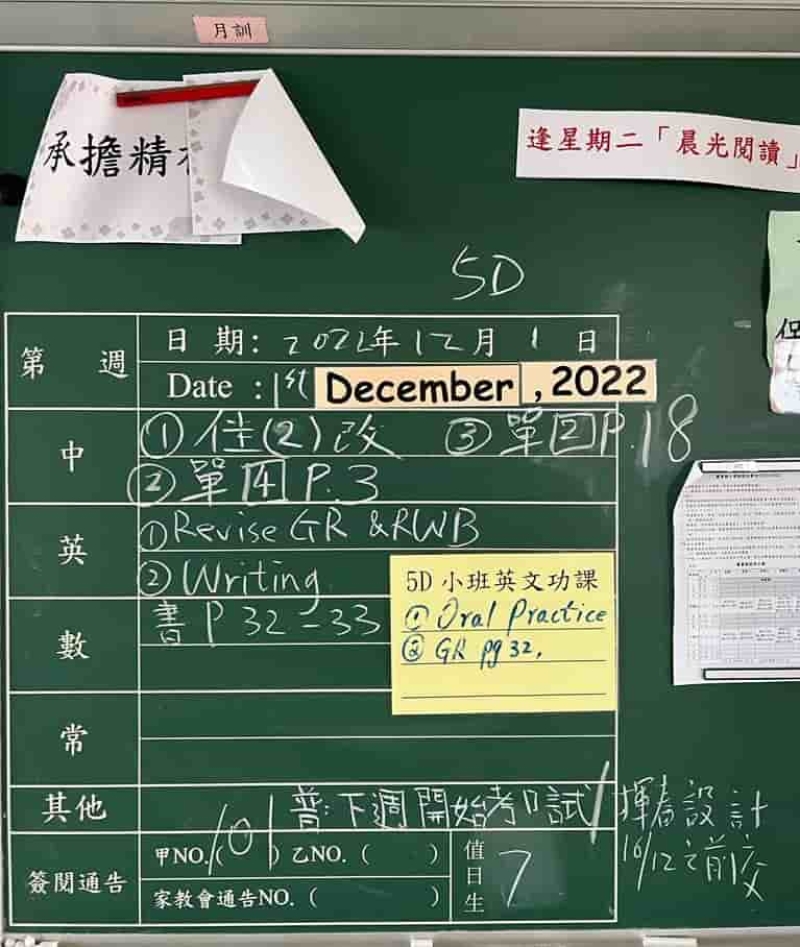 月訓
承擔精
逢星期二「晨光閱讀」
5D
第 週
日 期: 2022年12月 1 日
Date : 1st December , 2022
中
① 佳(2)改 ③ 單2 P.18
② 單4 P.3
英
① Revise GR & RWB
② Writing
5D 小班英文功課
① Oral Practice
② GR pg 32,
數
書 P 32 - 33
常
其他
普:下週開始考口試/揮春設計
16/12之前交
簽閱通告
甲NO.( 101 ) 乙NO. ( )
家教會通告NO. ( )
值日生 7